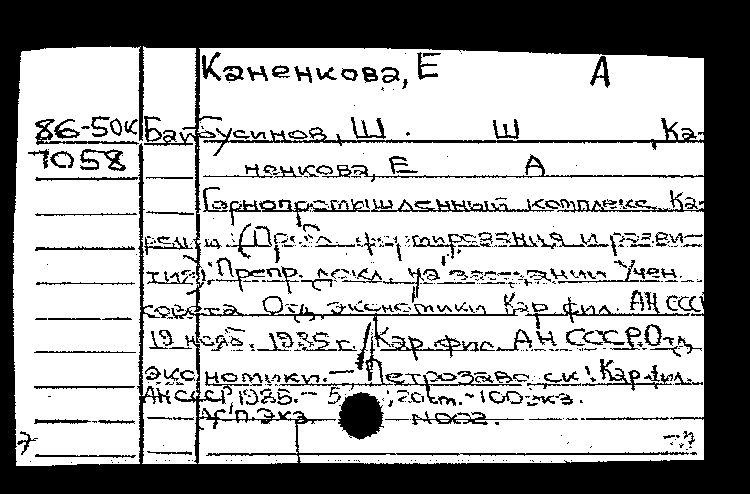 Каненкова, Е А
86-50к Байбусинов, Ш. Ш , Ка-
7058 ненкова, Е А
Горнопромышленный комплекс Ка-
релии: (Пробл. формирования и разви-
тия): Препр. докл. на заседании Учен.
совета Отд. экономики Кар. фил. АН СССР
19 нояб. 1985 г. / Кар. фил. АН СССР. Отд.
экономики. - Петрозаводск: Кар. фил.
АН СССР, 1985. - 5 ; 20 см. - 100 экз.
экз. N002.
7